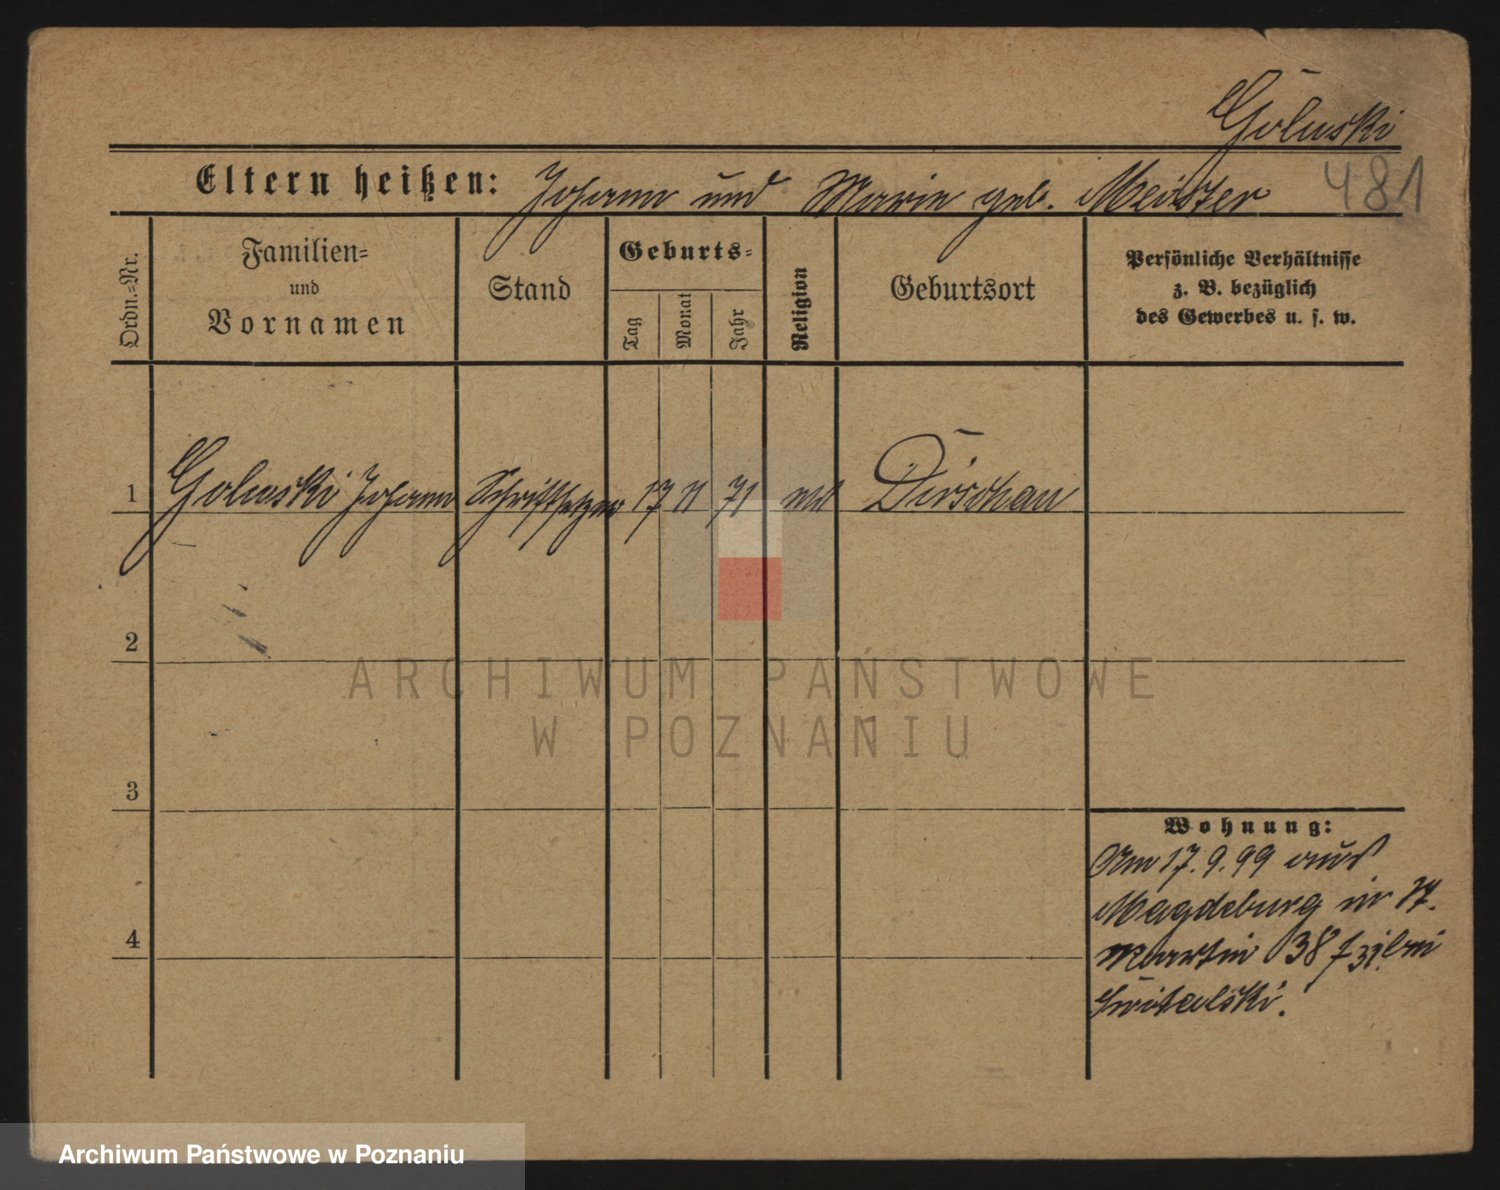 Goluski
481
Eltern heißen: Johann und Marie geb. Meister
Ordn.-Nr.
Familien-
und
Vornamen
Stand
Geburts-
Tag
Monat
Jahr
Religion
Geburtsort
Persönliche Verhältnisse
z. B. bezüglich
des Gewerbes u. s. w.
1 Goluski Johann Schriftsetzer 17 11 71 Dirschau
2
3
4
Wohnung:
Am 17.9.99 aus
Magdeburg in St.
Martin 38 bei
Switalski.
ARCHIWUM PAŃSTWOWE
W POZNANIU
Archiwum Państwowe w Poznaniu